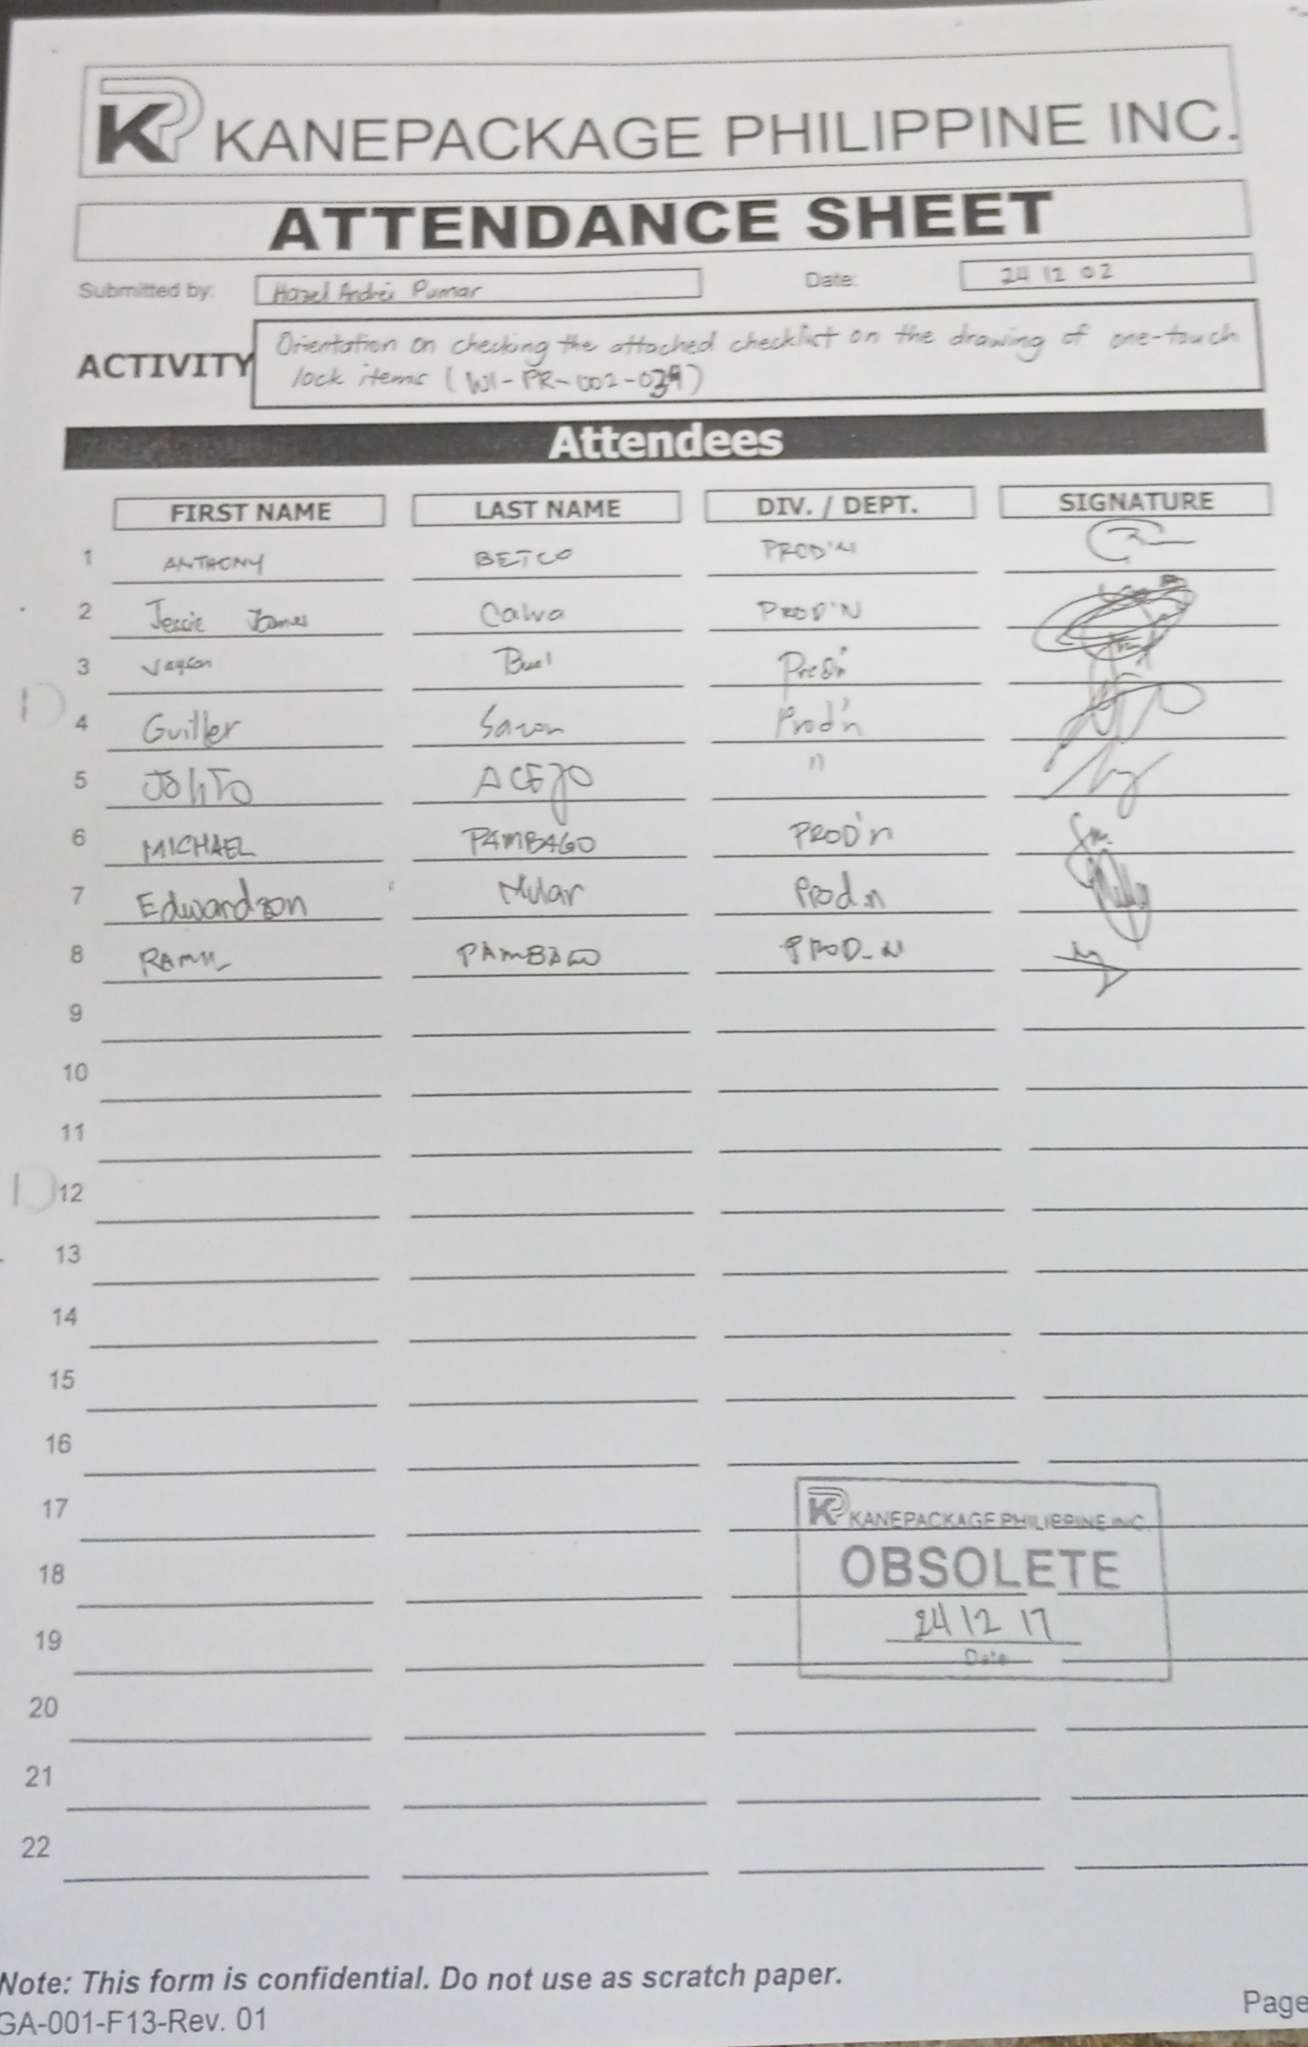 KP KANEPACKAGE PHILIPPINE INC.
ATTENDANCE SHEET
Submitted by: Hazel Andrei Pumar Date: 24 12 02
ACTIVITY Orientation on checking the attached checklist on the drawing of one-touch
lock items (WI-PR-002-039)
Attendees
FIRST NAME LAST NAME DIV. / DEPT. SIGNATURE
1 ANTHONY BETCO PROD'N
2 Jessie James Calva PROD'N
3 Jayson Buel Prod'n
4 Guiller Sazon Prod'n
5 JOLITO ACEJO "
6 MICHAEL PAMBAGO PROD'n
7 Edwardson Mular Prod.n
8 PAMBAGO PROD_N
9
10
11
12
13
14
15
16
17
18
19
20
21
22
KP KANEPACKAGE PHILIPPINE INC.
OBSOLETE
24 12 17
Date
Note: This form is confidential. Do not use as scratch paper.
GA-001-F13-Rev. 01
Page